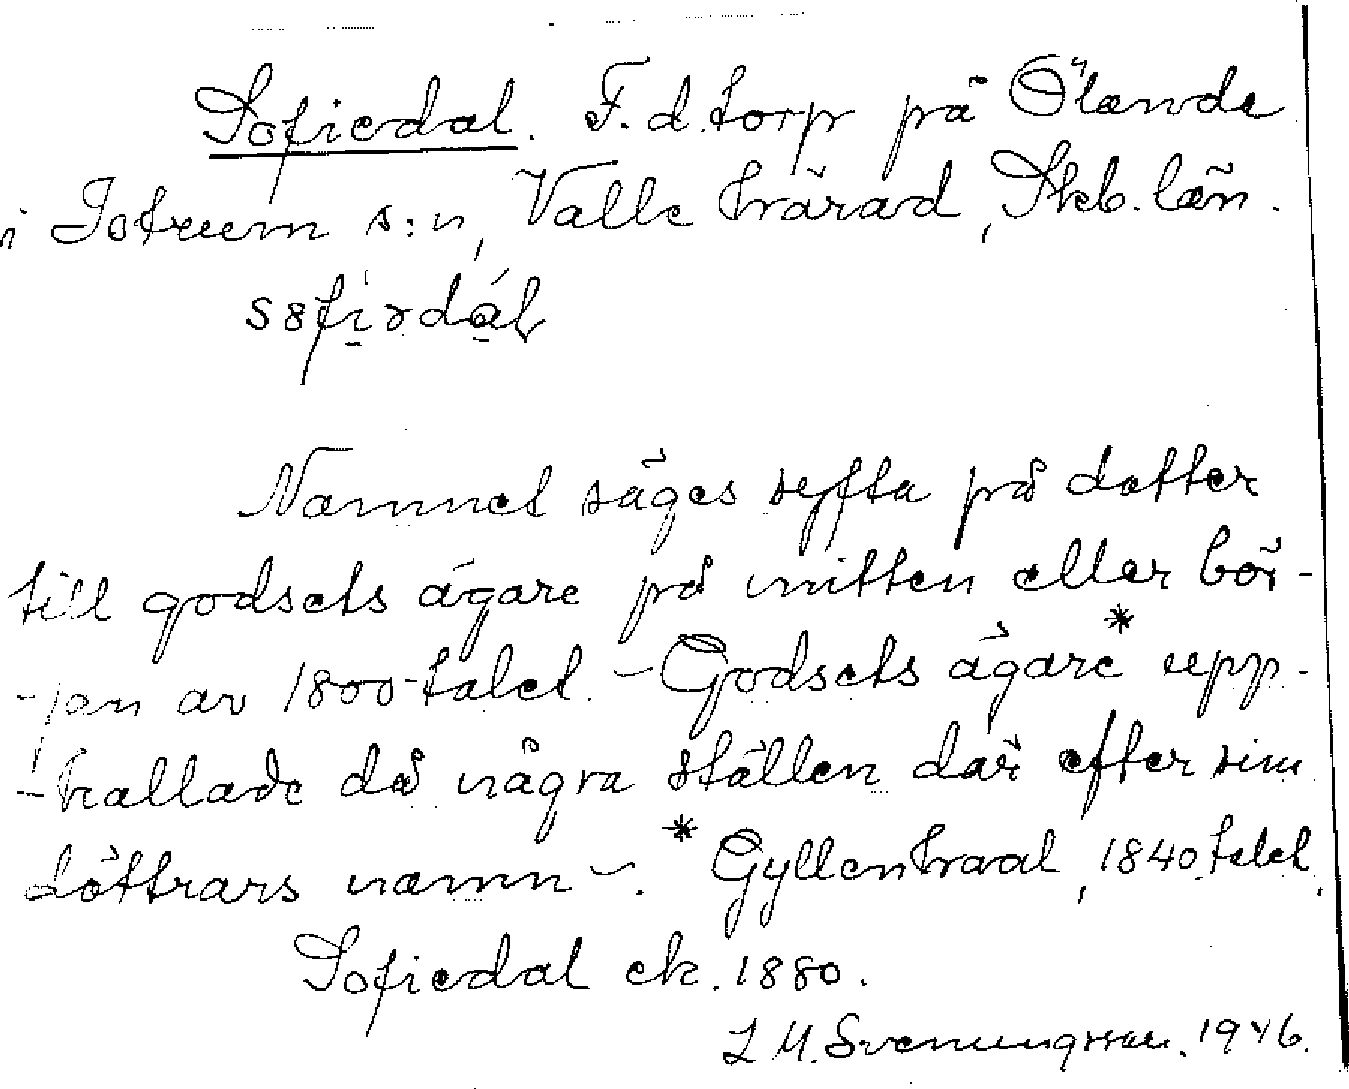 Sofiedal. F.d. torp på Ölanda
i Istrum s:n, Valle härad, Skb. län.
Namnet säges syfta på dotter
till godsets ägare på mitten eller bör-
-jan av 1800-talet. – Godsets ägare* upp-
-kallade då några ställen där efter sina
döttrars namn –. * Gyllenhaal, 1840 talet.
Sofiedal ek. 1880.
L M. Svenungsson. 1946.